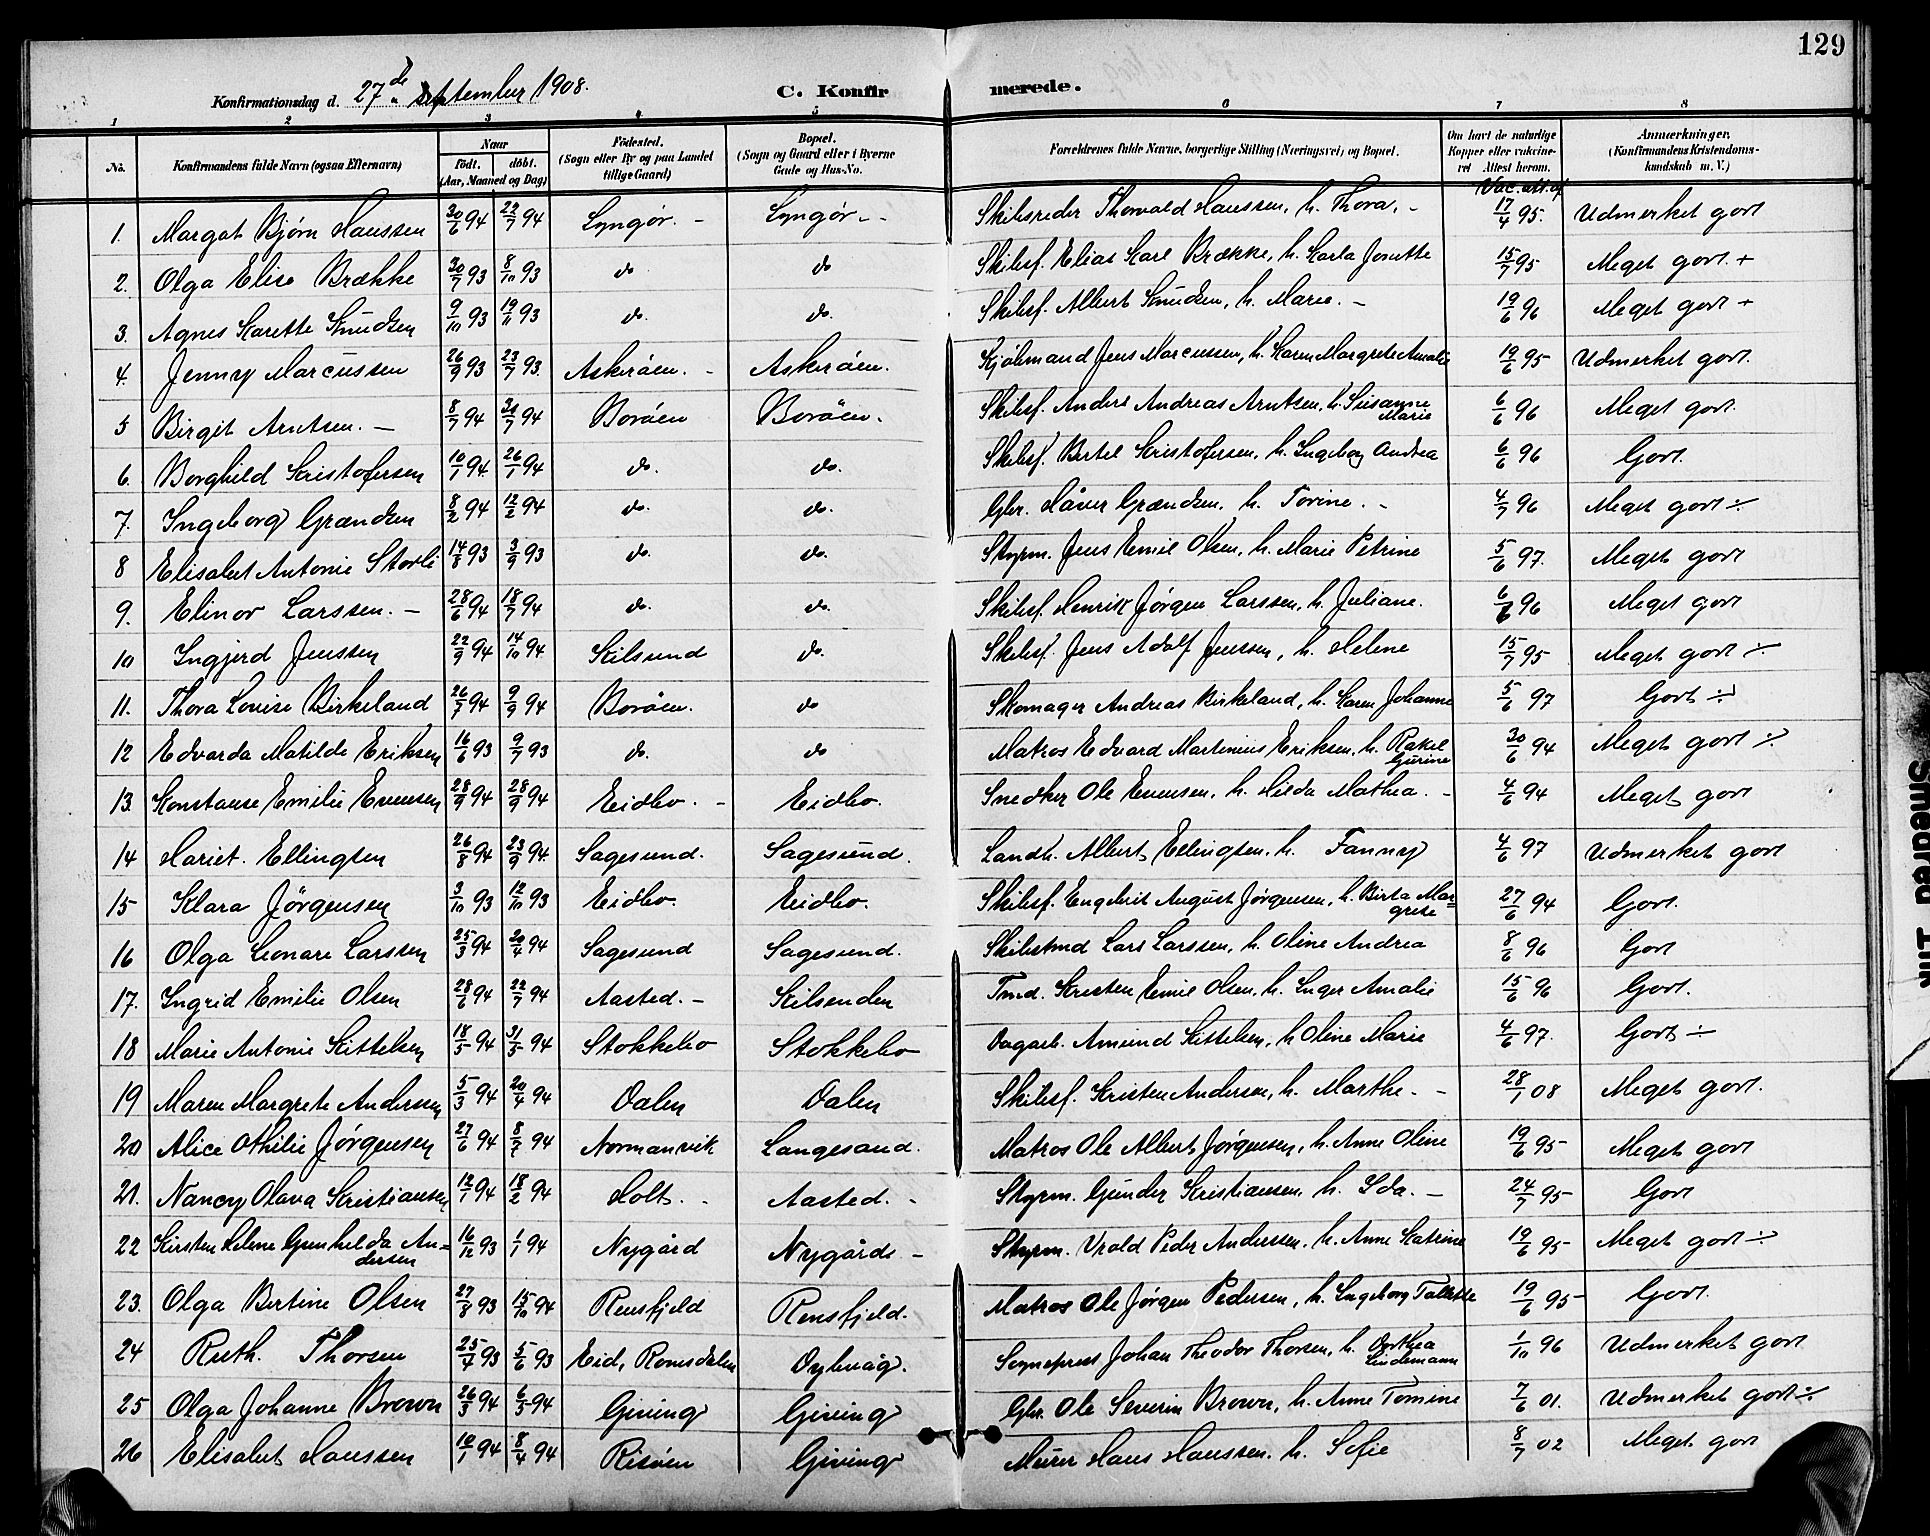 129
Konfirmationsdag d. 27de September 1908. C. Konfirmerede.
1 2 3 4 5 6 7 8
No. Konfirmandens fulde Navn (ogsaa Efternavn) Naar født. døbt. (Aar, Maaned og Dag) Fødested. (Sogn eller By og paa Landet tillige Gaard) Bopæl. (Sogn og Gaard eller i Byerne Gade og Hus-No. Forældrenes fulde Navne, borgerlige Stilling (Næringsvei) og Bopæl. Om havt de naturlige Kopper eller vakcineret Attest herom. Anmærkninger. (Konfirmandens Kristendomskundskab m. V.)
Vac. att. af
1. Margot Bjørn Hanssen 30/6 94 22/7 94 Lyngør. - Lyngør. - Skibsreder Thorvald Hanssen, h. Thora. - 17/4 95. Udmerket godt
2. Olga Elise Brække 30/7 93 8/10 93 do do Skibsf. Elias Karl Brække, h. Karla Josette 15/7 95 Meget godt. +
3. Agnes Karette Knudsen 9/10 93 19/11 93 do. do. Skibsf. Albert Knudsen, h. Marie. - 19/6 96 Meget godt +
4. Jenny Marcussen 26/9 93 23/7 93. Askerøen. - Askerøen. Kjøbmand Jens Marcussen, h. Karen Margrete Amalie 19/6 95 Udmerket godt.
5 Birgit Arntsen. - 8/7 94 31/7 94 Borøen Borøen. Skibsf. Anders Andreas Arntsen, h. Susanne Marie 6/6 96 Meget godt.
6. Borghild Kristofersen 10/7 94. 26/7 94 do. do. Skibsf. Bertel Kristofersen, h. Ingeborg Andrea 6/6 96 Godt.
7. Ingeborg Grændsen 8/2 94 12/2 94 do. do. Gbr. Håver Grændsen, h. Torine. - 4/7 96 Meget godt ÷
8 Elisabet Antonie Storli 14/8 93 3/9 93 do. do. Styrm. Jens Emil Olsen, h. Marie Petrine 5/6 97. Meget godt
9. Elinor Larssen. - 28/6 94 18/7 94 do. do. Skibsf. Henrik Jørgen Larssen, h. Juliane. 6/6 96 Meget godt
10 Ingjerd Jenssen 22/9 94 14/10 94 Kilsund do. Skibsf. Jens Adolf Jenssen, h. Helene 15/7 95 Meget godt ÷
11. Thora Lovise Birkeland 26/7 94 9/9 94 Borøen. do Skomager Andreas Birkeland, h. Karen Johanne 5/6 97 Godt ÷
12 Edvarda Matilde Eriksen 16/6 93 9/7 93 do. do Matros Edvard Martinius Eriksen, h. Rakel Gurine 30/6 94 Meget godt ÷
13. Konstanse Emilie Evensen 28/9 94 28/9 94 Eidbo. - Eidbo. Snedker Ole Evensen, h. Hilda Mathea. - 4/6 94 Meget godt
14 Hariet. Ellingsen 26/8 94 23/9 94 Sagesund. Sagesund. Landh. Albert Ellingsen. h. Fanny 4/6 97 Udmerket godt
15 Klara Jørgensen 3/10 93 12/10 93 Eidbo. Eidbo. Skibsf. Engebrit August Jørgensen, h. Birta Margrete 27/6 94 Godt.
16 Olga Leonare Larssen 25/3 94 20/4 94 Sagesund Sagesund. Skibstmd Lars Larssen, h. Oline Andrea 8/6 96 Godt
17. Ingrid Emilie Olsen 28/6 94 22/7 94 Aasted. - Kilsenden Tmd. Kristen Emil Olsen, h. Inger Amalie 15/6 96 Godt.
18 Marie Antonie Kittelsen 18/5 94 31/5 94 Stokkebo Stokkebo Dagarb. Amund Kittelsen, h Oline Marie 4/6 97. Godt ÷
19 Maren Margrete Anderssen 5/3 94 20/4 94 Dalen Dalen Skibsf. Kristen Andersen, h. Marthe. - 28/1 08 Meget godt.
20 Alice Othilie Jørgensen 27/6 94 8/7 94 Normanvik Langesand. Matros Ole Albert Jørgensen, h. Anne Oline 19/6 95 Meget godt
21. Nancy Olava Kristiansen 12/1 94 18/2 94 Holt. - Aasted. - Styrm. Gunder Kristiansen, h. Ida. - 24/7 95 Godt
22 Kirsten Helene Gunhilda Andersen 16/12 93 1/1 94 Nygård Nygårde - Styrm. Vrold Peder Anderssen, h. Anne Katrine 19/6 95 Meget godt ÷
23. Olga Bertine Olsen 27/8 93 15/10 94 Rensfjeld Rensfjeld. Matros Ole Jørgen Pedersen, h. Ingeborg Tallette 19/6 95 Godt.
24 Ruth. Thorsen 25/4 93 5/6 93 Eid, Romsdalen Dybvåg. Sogneprest Johan Theodor Thorsen, h. Dorthea Lindemann 1/10 96 Udmerket godt
25 Olga Johanne Brown 26/3 94 6/5 94 Giving Giving Gbr. Ole Severin Brown, h. Anne Tomine 7/6 01. Udmerket godt ÷
26 Elisabet Hanssen 10/1 94 8/4 94 Risøen Giving Murer Hans Hanssen. h. Sofie 8/7 02 Meget godt